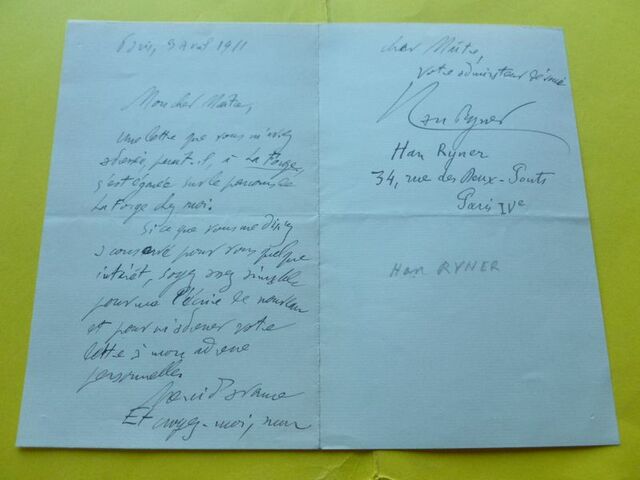 Paris, 9 avril 1911
Mon cher Maître,
une lettre que vous m'avez
adressée, paraît-il, à La Forge,
s'est égarée sur le parcours de
La Forge chez moi.
Si ce que vous me disiez
a conservé pour vous quelque
intérêt, soyez assez aimable
pour me l'écrire de nouveau
et pour m'adresser votre
lettre à mon adresse
personnelle.
Merci d'avance
Et croyez-moi, mon
cher Maître,
votre admirateur dévoué
Han Ryner
Han Ryner
34, rue des Deux-Ponts
Paris IVe
Han RYNER